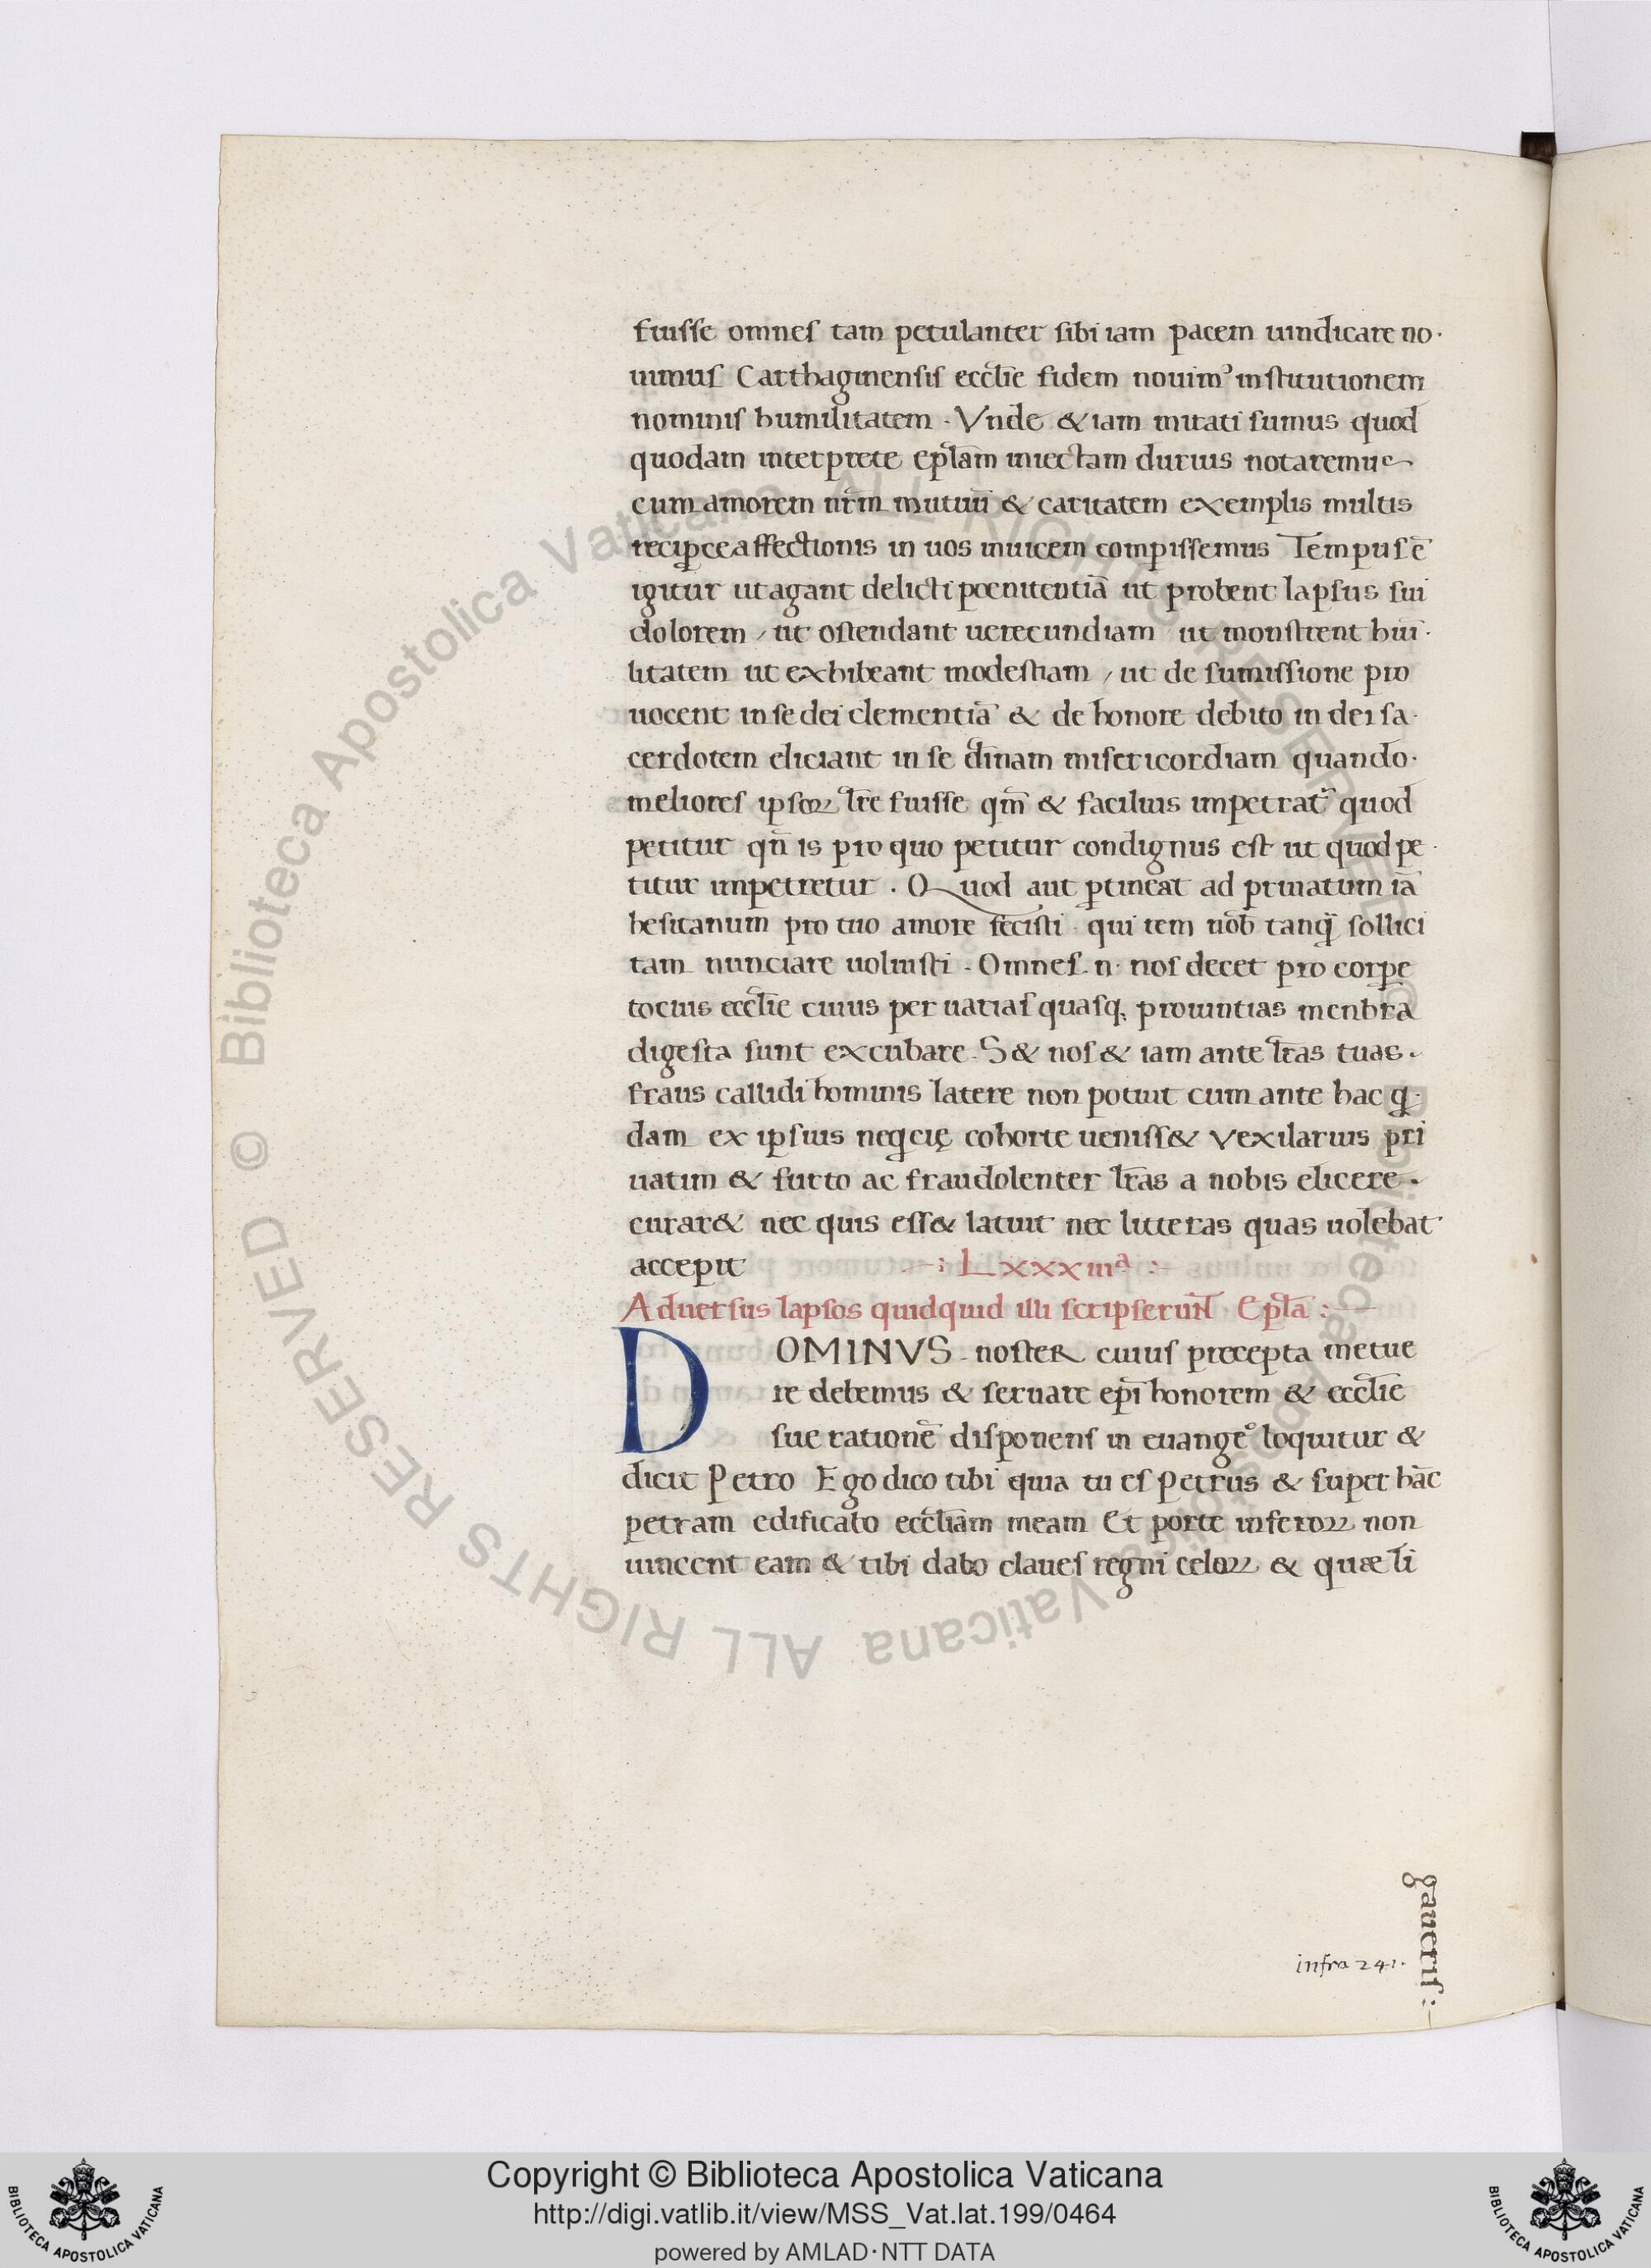 fuisse omnes tam petulanter sibi iam pacem uindicare no·
uimus Carthaginensis eccłie fidem nouim᾽ institutionem
nominis humilitatem · Vnde & iam mirati sumus quod
quodam interprete epłam iniectam durius notaremus
cum amorem nr̄m mutuū & caritatem exemplis multis
reciꝓce affectionis in uos inuicem compissemus Tempus ē
igitur ut agant delicti poenitentiā ut probent lapsus sui
dolorem / ut ostendant uerecundiam ut monstrent hūi·
litatem ut exhibeant modestiam / ut de sumissione pro
uocent in se dei clementiā & de honore debito in dei sa·
cerdotem eliciant in se diuinam misericordiam quando·
meliores ipsoꝝ łre fuisse qm̄ & facilius impetrat᷑ quod
petitur qn̄ is pro quo petitur condignus est ut quod pe·
titur impetretur · Quod aut ꝑtineat ad priuatum iā
besitanum pro tuo amore fecisti · qui rem nob̄ tanq̄ sollici
tam nunciare uoluisti · Omnes · n · nos decet pro corpe
tocius eccłie cuius per uarias quasq; prouintias menbra
digesta sunt excubare · S& nos & iam ante łras tuas ·
fraus callidi hominis latere non potuit cum ante hac q·
dam ex ipsius neqcię cohorte ueniss& vexilarius pri
uatim & furto ac fraudolenter łras a nobis elicere ·
curar& nec quis ess& latuit nec litteras quas uolebat
accepit :· Lxxxiiiᵃ :·
Aduersus lapsos quidquid illi scripserunt Epła :—
DOMINVS · noster cuius precepta metue
re debemus & seruare ep̄i honorem & eccłie
sue rationē disponens in euangeᵒ loquitur &
dicit Petro Ego dico tibi quia tu es Petrus & super hāc
petram edificabo eccłiam meam Et porte inferoꝝ non
uincent eam & tibi dabo claues regni celoꝝ & quæ li
gaueris :—
infra 241.
© Biblioteca Apostolica Vaticana ALL RIGHTS RESERVED
© Biblioteca Apostolica Vaticana ALL RIGHTS RESERVED
Copyright © Biblioteca Apostolica Vaticana
http://digi.vatlib.it/view/MSS_Vat.lat.199/0464
powered by AMLAD·NTT DATA
BIBLIOTECA APOSTOLICA VATICANA
BIBLIOTECA APOSTOLICA VATICANA